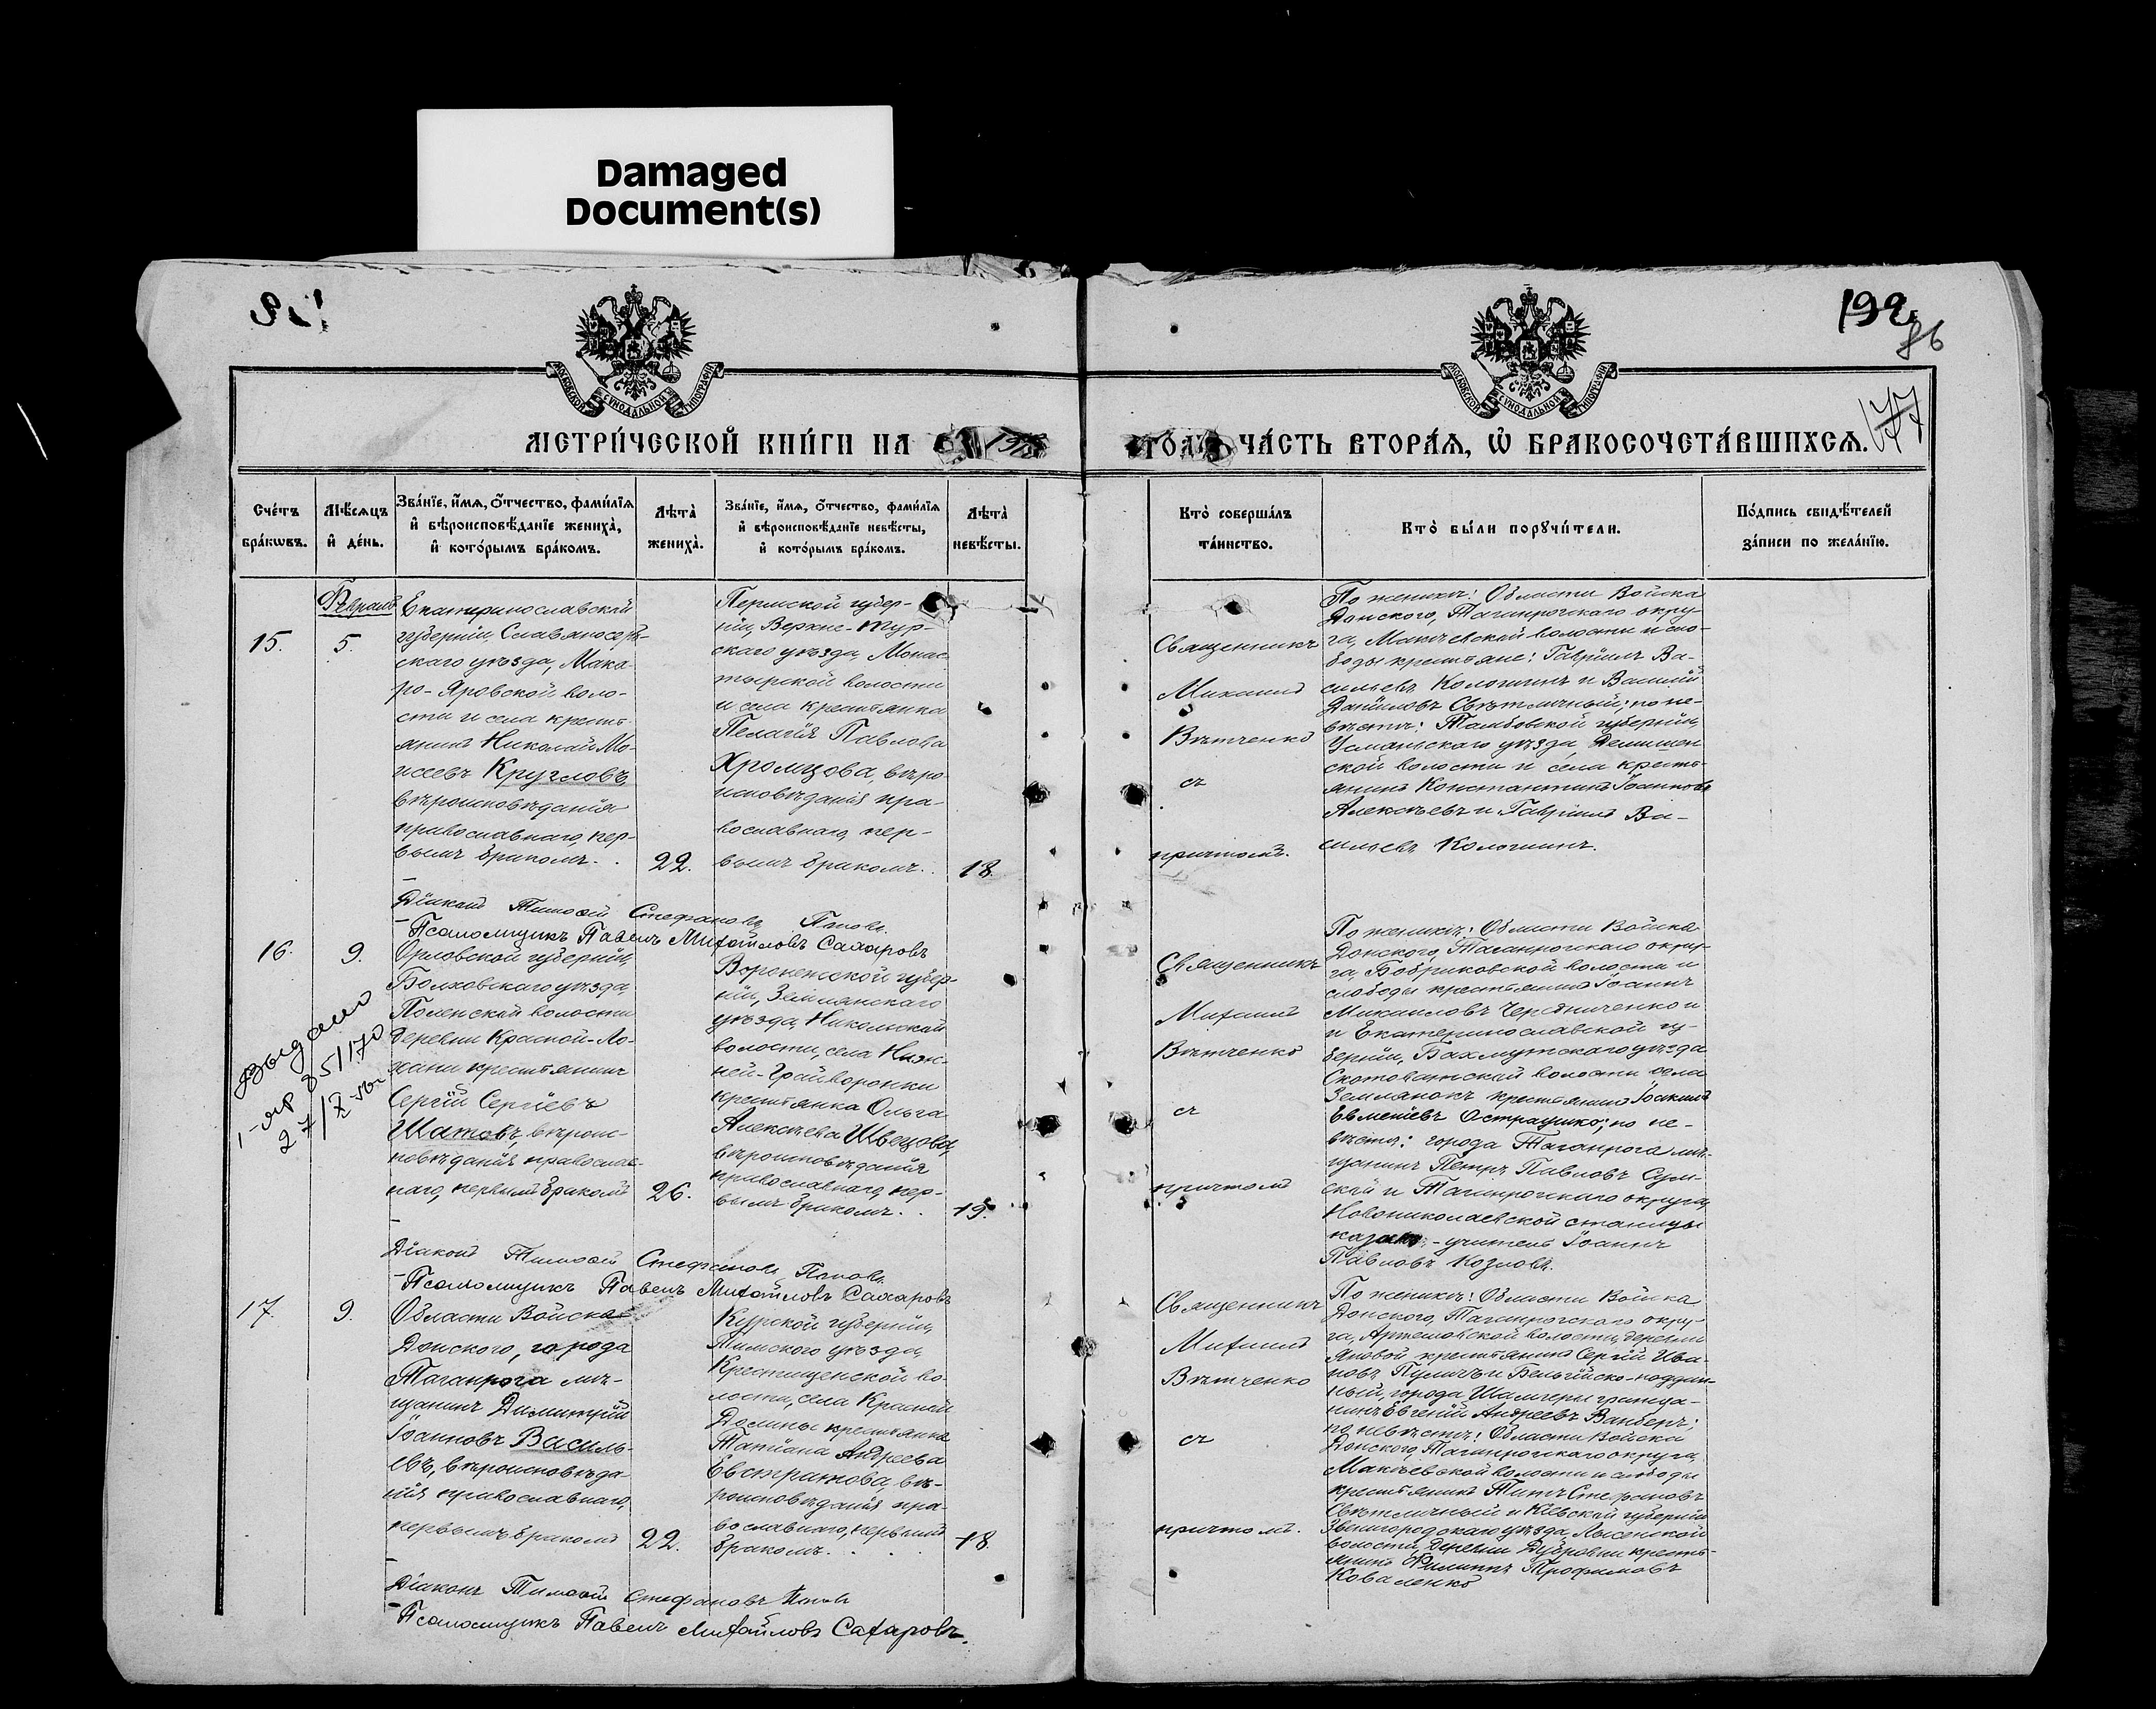 Damaged
Document(s)
192
86
177
МОСКОВСКОЙ СѴНОДАЛЬНОЙ ТИПОГРАФІИ
МОСКОВСКОЙ СѴНОДАЛЬНОЙ ТИПОГРАФІИ
МЕТРИ́ЧЕСКОЙ КНИ́ГИ НА
ГОДЪ ЧА́СТЬ ВТОРА́Я, Ѡ БРАКОСОЧЕТА́ВШИХСЯ.
Сче́тъ
бра́кѡвъ.
Мѣ́сяцъ
и҆ де́нь.
Зва́нїе, и҆́мя, ѻ҆́тчество, фами́лїя
и҆ вѣроисповѣ́данїе жениха̀,
и҆ кото́рымъ бра́комъ.
Лѣта̀
жениха̀.
Зва́нїе, и҆́мя, ѻ҆́тчество, фами́лїя
и҆ вѣроисповѣ́данїе невѣ́сты,
и҆ кото́рымъ бра́комъ.
Лѣта̀
невѣ́сты.
Кто̀ соверша́лъ
та́инство.
Кто̀ бы́ли порꙋчи́тели.
По́дпись свидѣ́телей
за́писи по жела́нїю.
Февраль
15.
5.
Екатеринославской
губерніи, Славяносерб-
скаго уѣзда, Мака-
ро-Яровской воло-
сти и села кресть-
янинъ Николай Мо-
исеевъ Кругловъ,
вѣроисповѣданія
православнаго, пер-
вымъ бракомъ.
22.
Пермской губер-
ніи, Верхне-Тур-
скаго уѣзда, Монас-
тырской волости
и села крестьянка
Пелагія Павлова
Хромцова, вѣро-
исповѣданія пра-
вославнаго, пер-
вымъ бракомъ.
18.
Священникъ
Михаилъ
Вѣтченко
съ
причтомъ.
По женихѣ: Области Войска
Донского, Таганрогскаго окру-
га, Макѣевской волости и сло-
боды крестьяне: Гавріилъ Ва-
сильевъ Колошинъ и Василій
Даніиловъ Свѣтличный; по не-
вѣстѣ: Тамбовской губерніи,
Усманьскаго уѣзда, Демшен
ской волости и села кресть-
янинъ Константинъ Іоанновъ
Алексѣевъ и Гавріилъ Ва-
сильевъ Колошинъ.
Діаконъ Тимоѳей Стефановъ Поповъ.
Псаломщикъ Павелъ Михайловъ Сахаровъ
16.
9.
Выдано
27/X
Орловской губерніи,
Болховскаго уѣзда,
Поленской волости
деревни Красной-Ло-
хани крестьянинъ
Сергій Сергіевъ
Шатовъ, вѣроис-
повѣданія православ-
наго, первымъ бракомъ
26.
Воронежской губер-
ніи, Землянскаго
уѣзда, Никольской
волости, села Ниж-
ней-Грайворонки
крестьянка Ольга
Алексѣева Швецова,
вѣроисповѣданія
православнаго, пер-
вымъ бракомъ.
19.
Священникъ
Михаилъ
Вѣтченко
съ
причтомъ
По женихѣ: Области Войска
Донского, Таганрогскаго окру-
га, Бобриковской волости и
слободы крестьянинъ Іоаннъ
Михаиловъ Чередниченко и
и Екатеринославской гу-
берніи, Бахмутскаго уѣзда
Скотоватской волости села
Землянокъ крестьянинъ Іоакимъ
Евменіевъ Остраушко; по не-
вѣстѣ: города Таганрога мѣ-
щанинъ Петръ Павловъ Сум-
скій и Таганрогскаго округа,
Новониколаевской станицы
казакъ-учитель Іоаннъ
Павловъ Козловъ.
Діаконъ Тимоѳей Стефановъ Поповъ.
Псаломщикъ Павелъ Михайловъ Сахаровъ
17.
9.
Области Войска
Донского, города
Таганрога мѣ-
щанинъ Димитрій
Іоанновъ Василь-
евъ, вѣроисповѣда-
нія православнаго,
первымъ бракомъ
22.
Курской губерніи,
Тимскаго уѣзда,
Крестищенской во-
лости, села Красной
Долины крестьянка
Татіана Андреева
Евстратова, вѣ-
роисповѣданія пра-
вославнаго, первымъ
бракомъ.
18.
Священникъ
Михаилъ
Вѣтченко
съ
причтомъ.
По женихѣ: Области Войска
Донского, Таганрогскаго окру-
га, Артемовской волости, деревни
Яновой крестьянинъ Сергій Ива-
новъ Пуличъ и Бельгійско-поддан-
ный, города гражда-
нинъ Евгеній Андреевъ Ванберъ;
по невѣстѣ: Области Войска
Донского, Таганрогскаго округа,
Макѣевской волости и слободы
крестьянинъ Титъ Стефановъ
Свѣтличный и Кіевской губерніи
Звенигородскаго уѣзда, Лысенской
волости, деревни Дубровки кресть-
янинъ Филиппъ Трофимовъ
Коваленко
Діаконъ Тимоѳей Стефановъ Поповъ
Псаломщикъ Павелъ Михайловъ Сахаровъ.